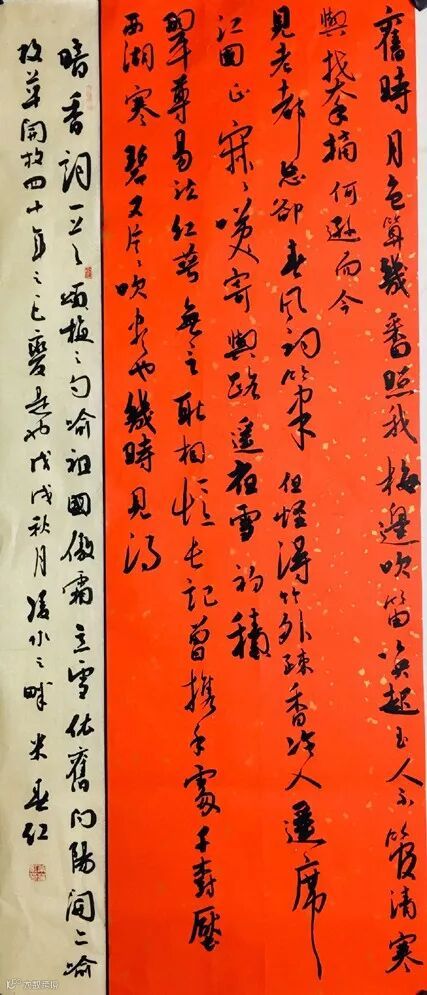 舊時月色算幾番照我梅邊吹笛喚起玉人不管清寒
與摘何遜而今
老都忘卻春風詞筆但怪得竹外疎香冷入遥席
江國正寂寂嘆寄與路遥夜雪初積
翠尊易泣紅萼無言耿相憶長記曾携手處千樹壓
西湖寒碧又片片吹盡也幾時見得
暗香詞頌梅之句喻祖國傲霜立雪依舊向陽開二喻
改革開放四十年之巨變是也戊戌秋月凌水之畔米春紅